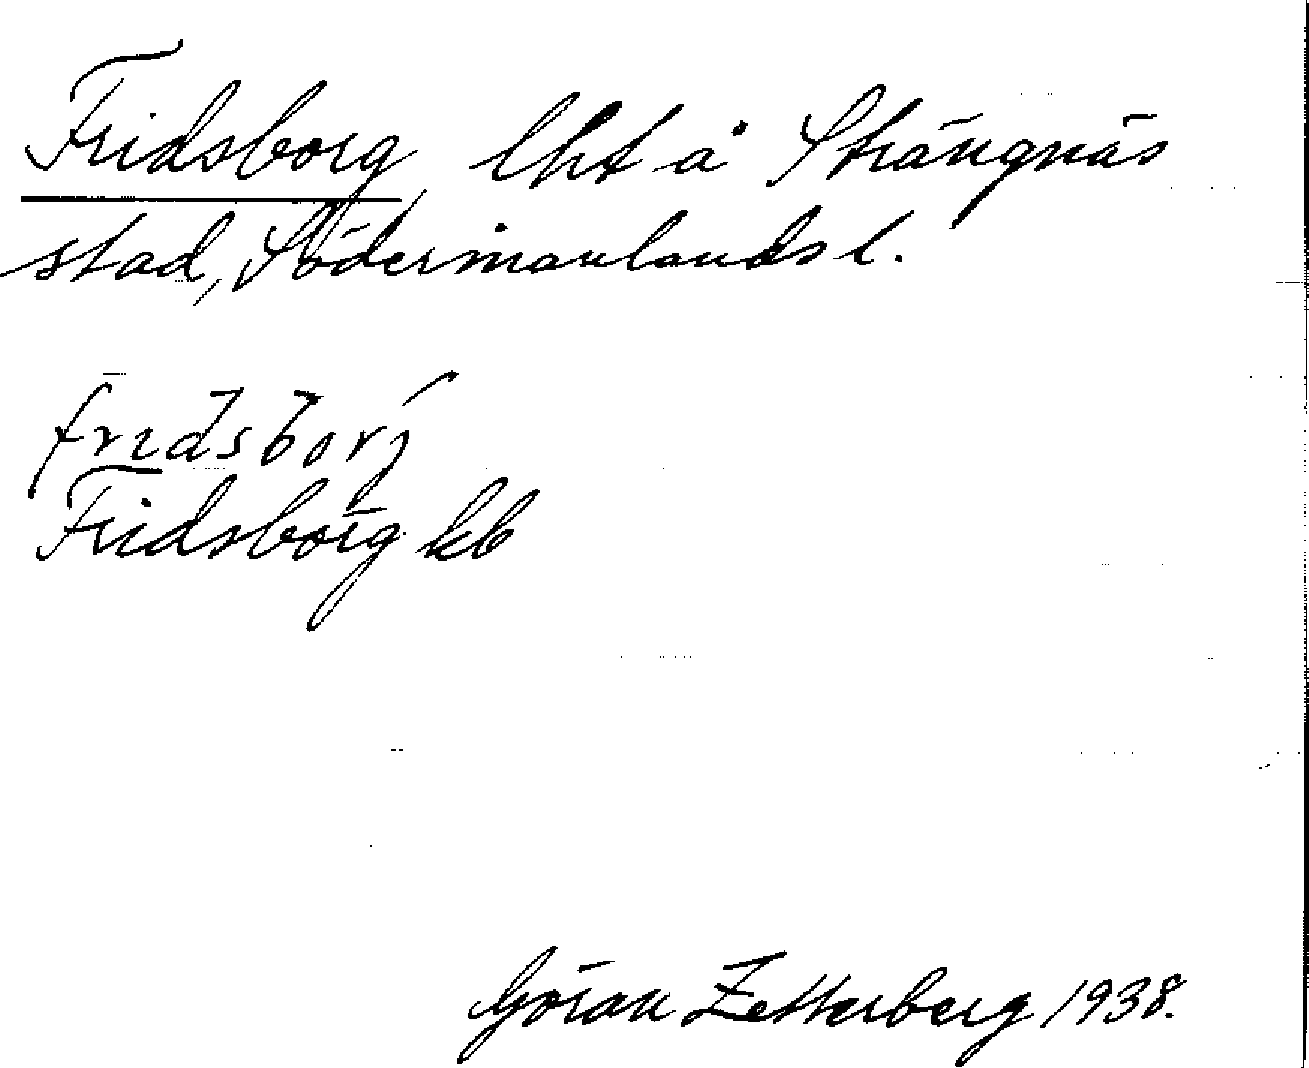 Fridsborg, lht å Strängnäs
stad, Södermanlands l.
fridsborj
Fridsborg kb
Göran Zetterberg 1938.